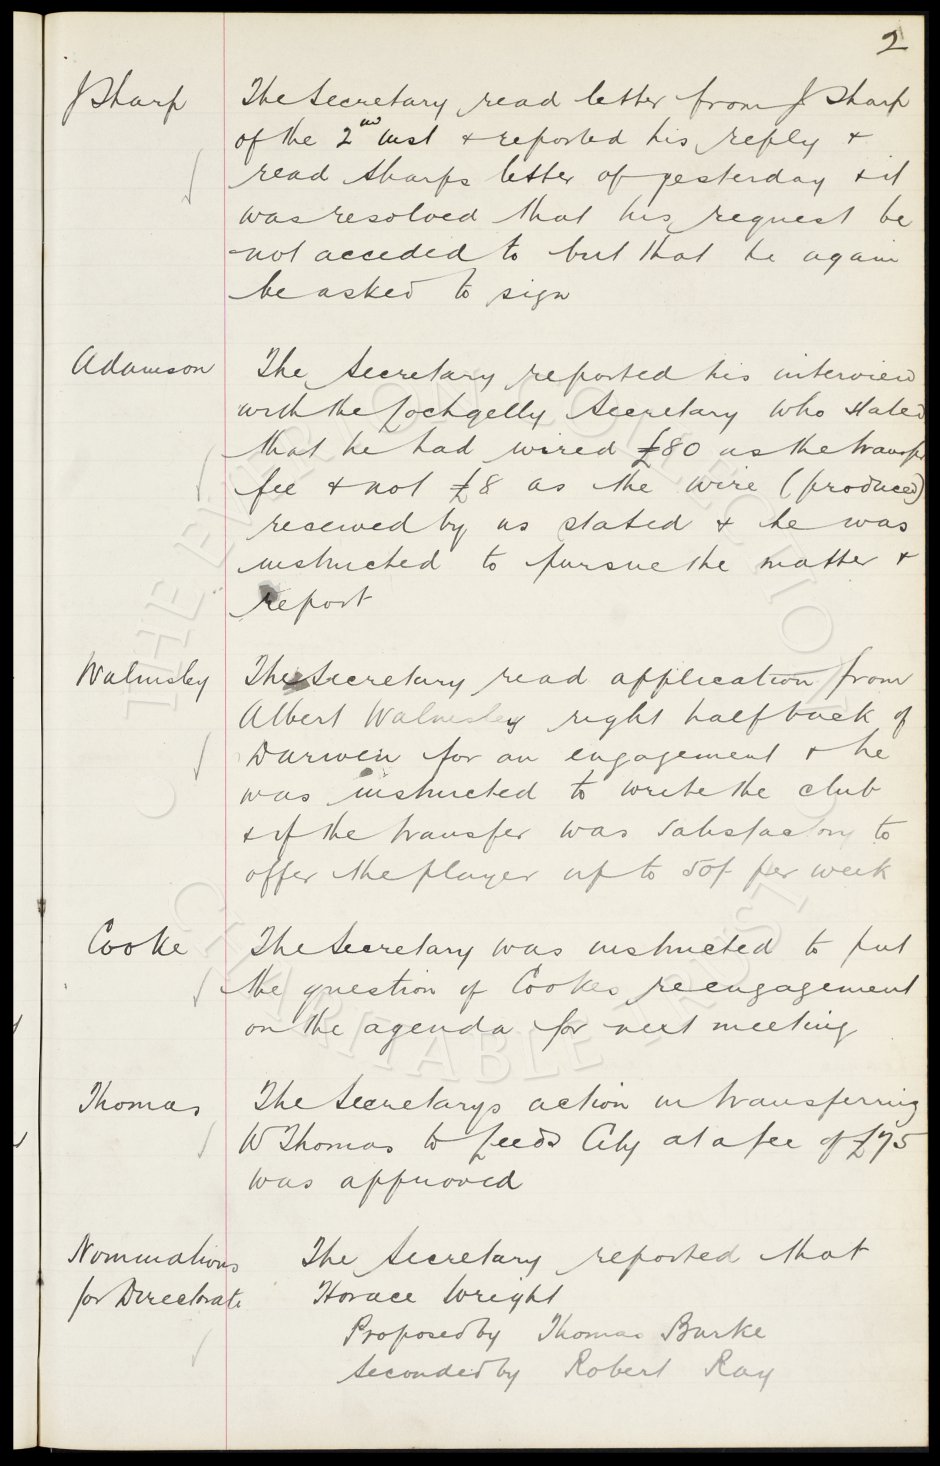 2
J Sharp
The Secretary read letter from J Sharp
of the 2nd inst & reported his reply &
read Sharps letter of yesterday & it
was resolved that his request be
not acceded to but that he again
be asked to sign
Adamson
The Secretary reported his interview
with the Lochgelly Secretary who stated
that he had wired £80 as the transfer
fee & not £8 as the wire (produced)
received by us stated & he was
instructed to pursue the matter &
report
Walmsley
The Secretary read application from
Albert Walmsley right half back of
Darwen for an engagement & he
was instructed to write the club
& if the transfer was satisfactory to
offer the player up to 50/ per week
Cooke
The Secretary was instructed to put
the question of Cookes reengagement
on the agenda for next meeting
Thomas
The Secretarys action in transferring
W Thomas to Leeds City at a fee of £75
was approved
Nominations
for Directorate
The Secretary reported that
Horace Wright
Proposed by Thomas Burke
Seconded by Robert Ray
THE EVERTON COLLECTION
CHARITABLE TRUST